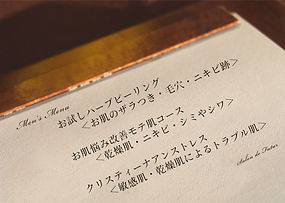 Men's Menu
お試しハーブピーリング
<お肌のザラつき・毛穴・ニキビ跡>
お肌悩み改善モテ肌コース
<乾燥肌・ニキビ・シミやシワ>
クリスティーナアンストレス
<敏感肌・乾燥肌によるトラブル肌>
Salon de